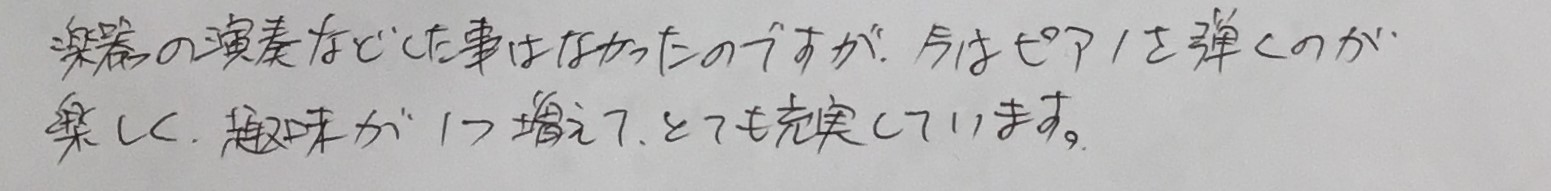 楽器の演奏などした事はなかったのですが、今はピアノを弾くのが
楽しく、趣味が1つ増えて、とても充実しています。